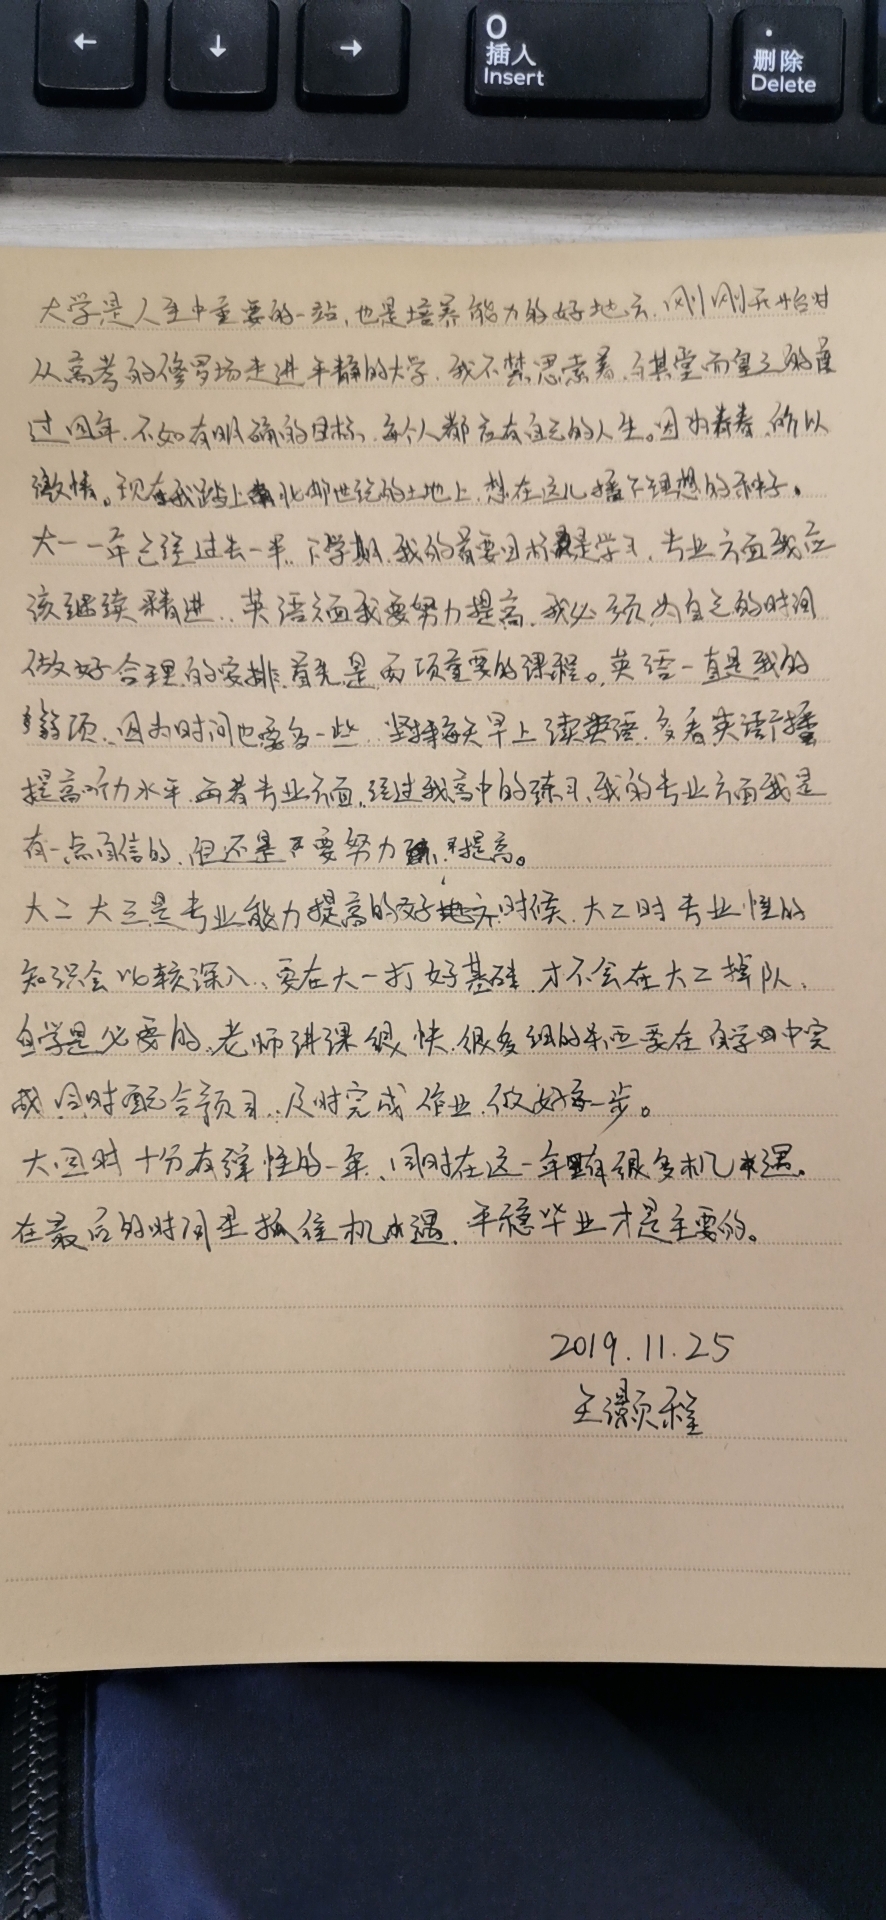 ←
↓
→
0
插入
Insert
.
删除
Delete
大学是人生中重要的一站,也是培养能力的好地方,刚刚开始时
从高考的修罗场走进平静的大学,我不禁思索着,与其堂而皇之的度
过四年,不如有明确的目标,每个人都应有自己的人生。因为青春,所以
激情。现在我踏上北邮世纪的土地上,想在这儿播下理想的种子。
大一一年已经过去一半,下学期,我的首要目标是学习,专业方面我应
该继续精进,英语方面我要努力提高,我必须为自己的时间
做好合理的安排,首先是两项重要的课程。英语一直是我的
弱项,因为时间也要多一些,坚持每天早上读英语,多看英语广播
提高听力水平,再者专业方面,经过我高中的练习,我的专业方面我是
有一点自信的,但还是要努力提高。
大二大三是专业能力提高的好时候,大二时专业性的
知识会比较深入,要在大一打好基础,才不会在大二掉队,
自学是必要的,老师讲课很快,很多细的东西要在自学中完
成,同时配合预习,及时完成作业,做好每一步。
大四时十分有弹性的一年,同时在这一年有很多机遇,
在最后的时间里抓住机遇,平稳毕业才是主要的。
2019.11.25
王灏程